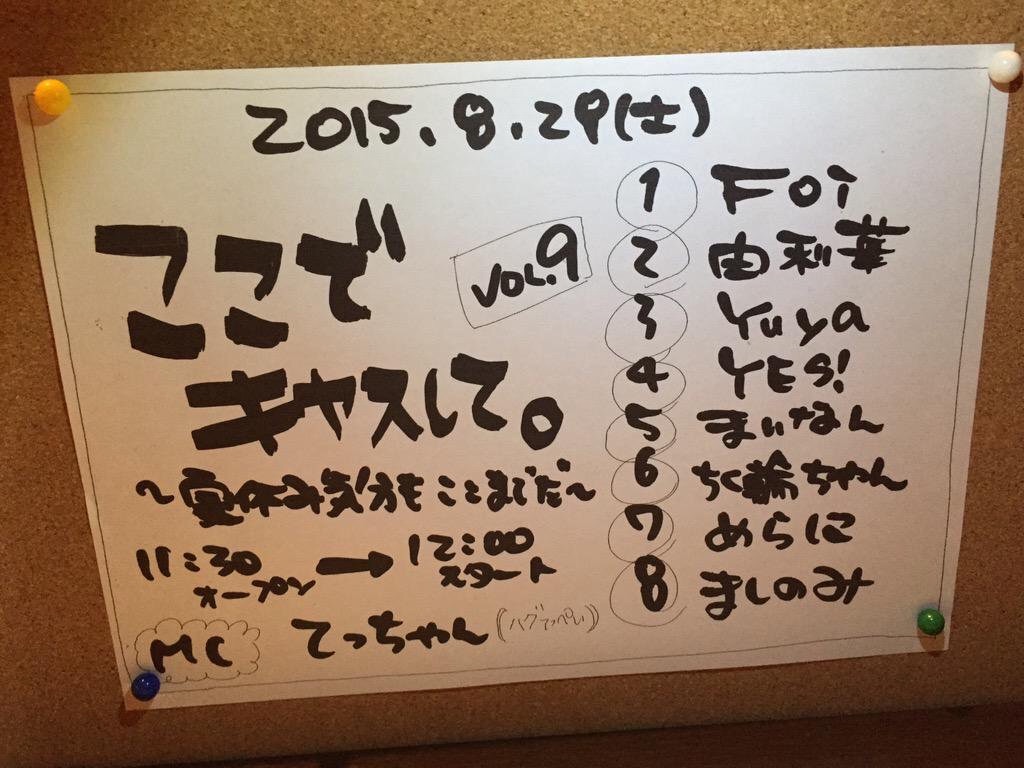 2015.8.29(土)
ここで
VOL.9
キャスして。
～夏休み気分もここまでだ～
11:30 → 12:00
オープン スタート
MC てっちゃん(ハグてっぺい)
1 FOi
2 由利葉
3 Yuya
4 YES!
5 まいなん
6 ちく輪ちゃん
7 めらに
8 ましのみ